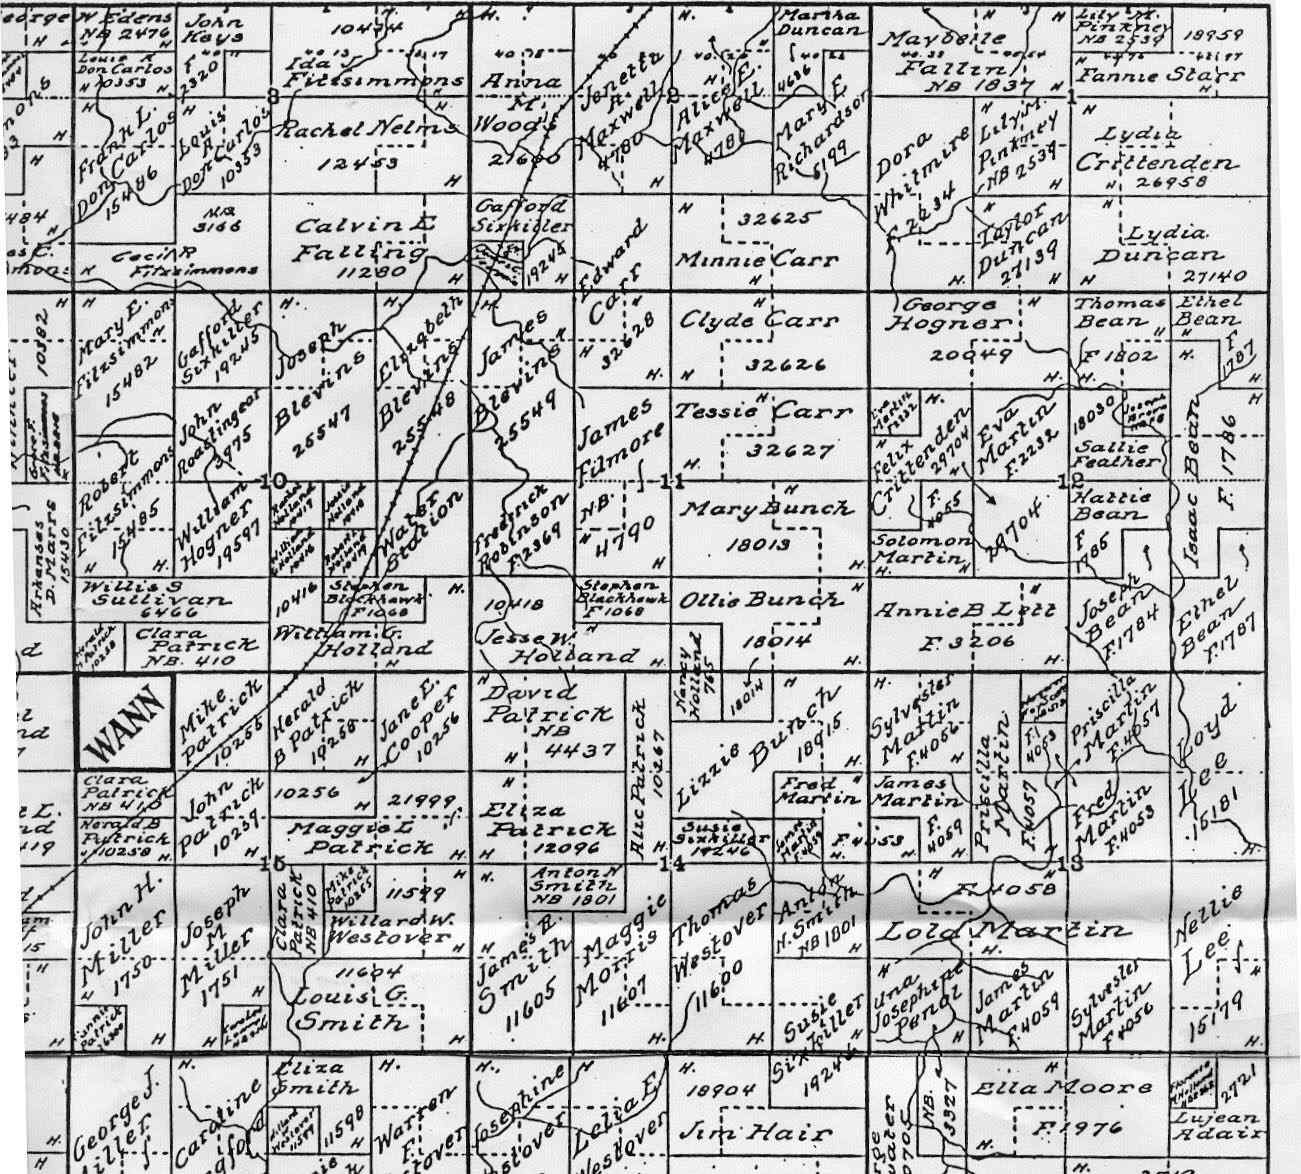 W Edens
NB 2476
John
Hays
2320
10474
Ida J
Fitzsimmons
Anna
M
Woods
21600
Jenetta
A.
Maxwell
4780
2
Alice E.
Maxwell
4781
Martha
Duncan
4636
Mary E
Richardson
5199
Maybelle
Fallin
NB 1837
Lily M.
Pinkney
NB 2539
18959
Fannie Starr
1
Louis R
Don Carlos
10353
3
Frank L.
Don Carlos
15486
Louis
R.
Don Carlos
10353
Rachel Nelms
12453
Dora
Whitmire
F 2234
Lily M.
Pinkney
NB 2539
Lydia
Crittenden
26958
NB
3166
Cecil R
Fitzsimmons
Calvin E
Falling
11280
Gafford
Sixkiller
19245
Edward
Carr
32628
32625
Minnie Carr
Taylor
Duncan
27139
Lydia
Duncan
27140
10382
Mary E.
Fitzsimmons
15482
Gafford
Sixkiller
19245
Joseph
Blevins
25547
Elizabeth
Blevins
25548
James
Blevins
25549
Clyde Carr
32626
George
Hogner
20049
Thomas
Bean
F 1802
Ethel
Bean
F
1787
John
Roastingear
3975
James
Filmore
NB.
4790
Tessie Carr
32627
Felix
Crittenden
29704
Eva
Martin
F.2232
18030
Sallie
Feather
Isaac Bean
F. 1786
Robert
Fitzsimmons
15485
10
11
12
William
Hogner
19597
Walter
Stalion
Fredrick
Robinson
F.2369
Mary Bunch
18013
F.
4055
Solomon
Martin
29704
Hattie
Bean
F
1785
Arkansas
D. Mars
15430
Willis S
Sullivan
6466
10416
Stephen
Blackhawk
F1068
10418
Stephen
Blackhawk
F 1068
Ollie Bunch
18014
Annie B Lett
F. 3206
Joseph
Bean
F.1784
Ethel
Bean
F.1787
Herald
B Patrick
10258
Clara
Patrick
NB. 410
William G.
Holland
Jesse W.
Holland
Nancy
Holland
765
18014
WANN
Mike
Patrick
10255
Herald
B Patrick
10258
Jane E.
Cooper
10256
David
Patrick
NB
4437
Alice Patrick
10267
Lizzie Bunch
18915
Sylvester
Martin
F.4056
Priscilla
Martin
F.4057
F.
4053
Priscilla
Martin
F.4057
Loyd
Lee
15181
Clara
Patrick
NB 410
Herald B
Patrick
10258
John
Patrick
10259
10256
21999
Maggie L
Patrick
Eliza
Patrick
12096
Fred
Martin
F 4053
James
Martin
F.
4059
Fred
Martin
F.4053
Susie
Sixkiller
19246
James
Martin
F.4059
15
14
13
John H.
Miller
1750
Joseph
M
Miller
1751
Clara
Patrick
NB 410
Mike
Patrick
10255
11599
Willard W.
Westover
Anton N
Smith
NB 1801
James R.
Smith
11605
Maggie
Morris
11607
Thomas
Westover
11600
Anton
N. Smith
NB 1801
F. 4058
Lola Martin
Nellie
Lee
15179
Fannie
Patrick
11604
Louis G.
Smith
Susie
Sixkiller
19246
Una
Josephine
Penal
James
Martin
F.4059
Sylvester
Martin
F 4056
George J.
Miller
Caroline
Eliza
Smith
Willard
Westover
11599
11598
Warren
F.
Westover
Josephine
Westover
Lelia E
Westover
18904
Jim Hair
NB.
3327
Ella Moore
F.1976
2721
Lujean
Adair